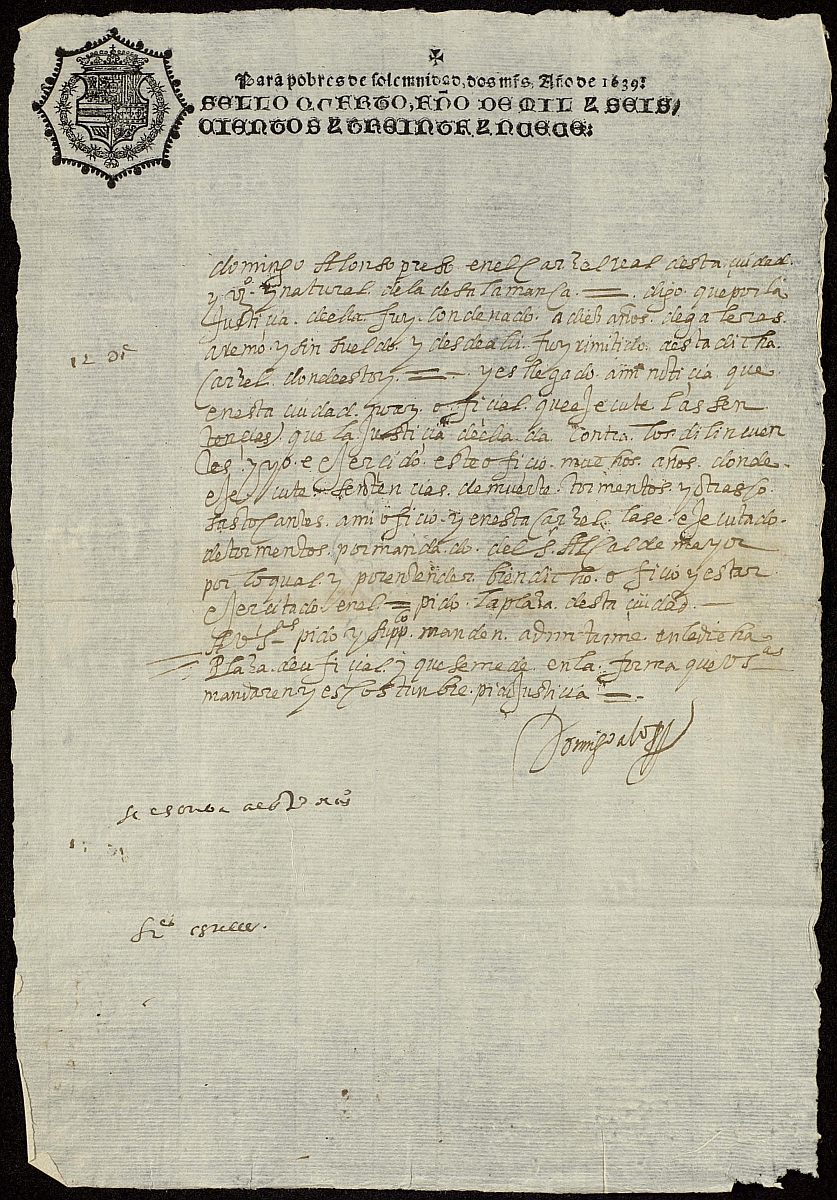 Para pobres de solemnidad, dos mrs, Año de 1639:
SELLO QVARTO, AÑO DE MIL Y SEIS/
CIENTOS Y TREINTA Y NUEVE:
domingo Alonso preso en el Carzel real desta ciudad
y vº y natural de la de Salamanca = digo que por la
Justicia della fuy condenado a dies años de galeras
a remo y sin sueldo y desde alli fuy rimitido a esta dicha
Carzel donde estoy = y es llegado a mi noticia que
en esta ciudad no ay oficial que ejecute las sen
tencias que la justicia della da contra los dilinquen
tes y yo e ejercido este oficio muchos años donde
e ejecute sentencias de muerte tormentos y otras co
sas tocantes a mi oficio y en esta Carzel las e ejecutado
de tormentos por mandado del s. Alcalde mayor
por lo qual y por entender bien dicho oficio y estar
ejercitado en el = pido la plaza desta ciudad —
A Vss.as pido y suppco manden admitirme en la dicha
Plaza de oficial y que se me de en la forma que Vss.as
mandaren y es costunbre pido justicia =
Domingo alº